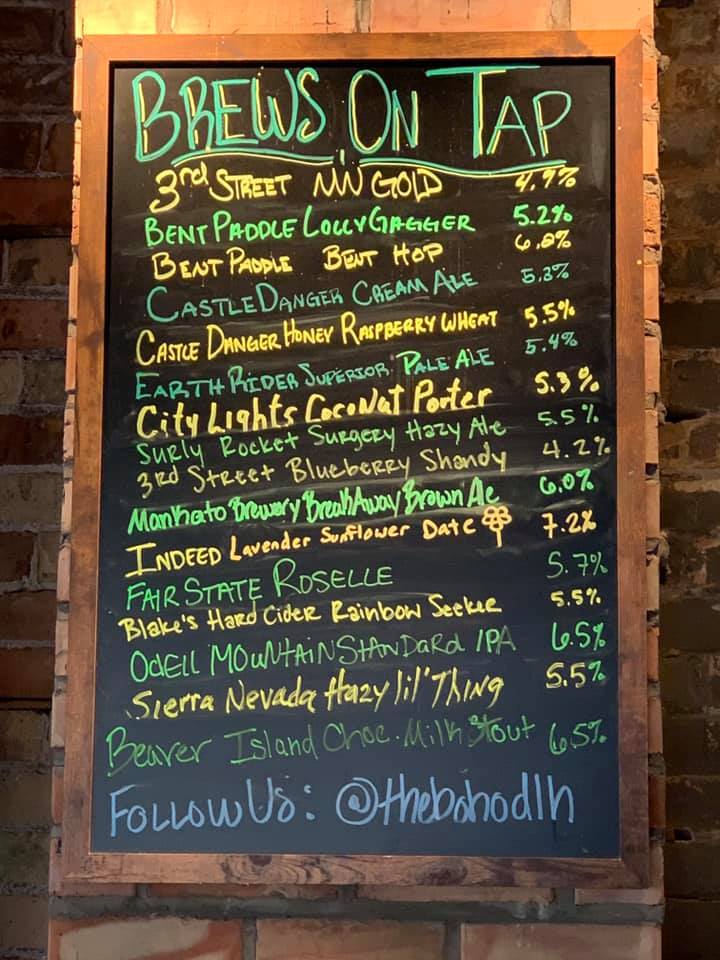 BREWS ON TAP
3rd STREET MN GOLD 4.9%
BENT PADDLE LOLLYGAGGER 5.2%
BENT PADDLE BENT HOP 6.0%
CASTLE DANGER CREAM ALE 5.3%
CASTLE DANGER HONEY RASPBERRY WHEAT 5.5%
EARTH RIDER SUPERIOR PALE ALE 5.4%
City Lights Coconut Porter 5.3%
Surly Rocket Surgery Hazy Ale 5.5%
3rd Street Blueberry Shandy 4.2%
Mankato Brewery BreakAway Brown Ale 6.0%
INDEED Lavender Sunflower Date 7.2%
FAIR STATE ROSELLE 5.7%
Blake's Hard Cider Rainbow Seeker 5.5%
ODELL MOUNTAIN STANDARD IPA 6.5%
Sierra Nevada Hazy lil' Thing 5.5%
Beaver Island Choc. Milk Stout 6.5%
FOLLOW US: @thebohodlh